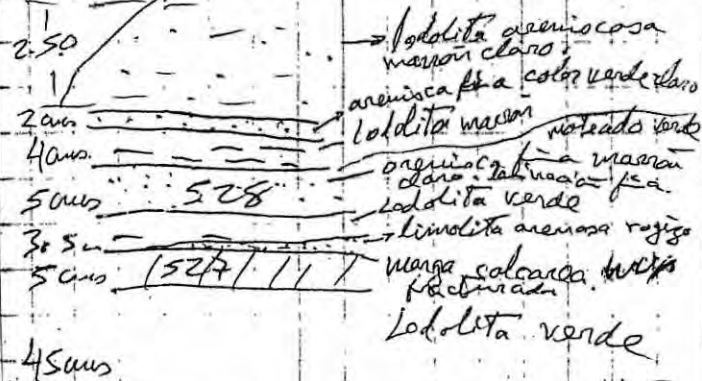 2.50
lodolita areniscosa
marrón claro.
arenisca fina color verde claro
2 cms
lodolita marrón moteado verde
4 cms.
arenisca fina marrón
claro. laminación fina.
5 cms 528
lodolita verde
3.5 cm
limolita arenosa rojizo
5 cms 527
marga calcarea
fracturada.
Lodolita verde
45 cms